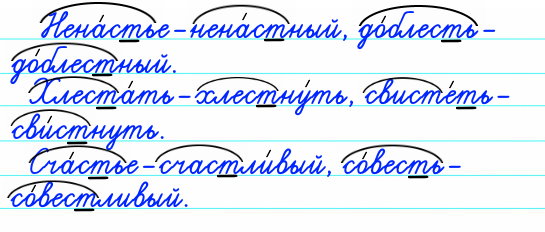 Нена́стье – нена́стный, до́блесть –
до́блестный.
Хлеста́ть – хлестну́ть, свисте́ть –
сви́стнуть.
Сча́стье – счастли́вый, со́весть –
со́вестливый.